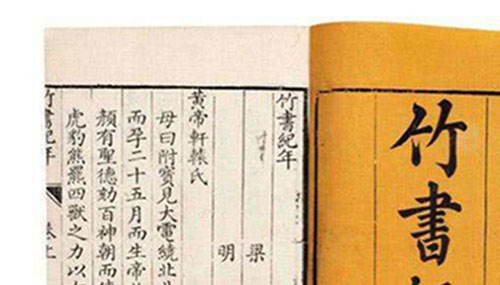 竹書
竹書紀年
梁
明
黃帝軒轅氏
母曰附寳見大電繞北
而孕二十五月而生帝
顏有聖德劾百神朝而
虎豹熊羆四獸之力以
竹書紀年 卷上